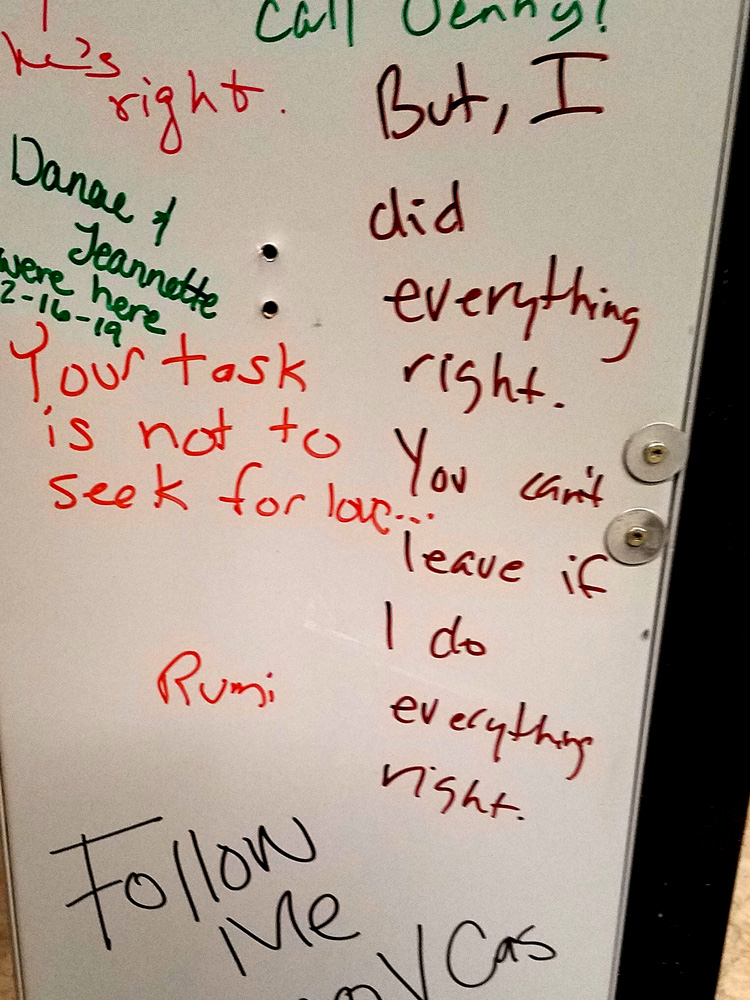 Call Jenny!
he's
right.
But, I
did
everything
right.
You can't
leave if
I do
everything
right.
Danae &
Jeannette
were here
2-16-19
Your task
is not to
seek for love...
Rumi
Follow
Me
Cas